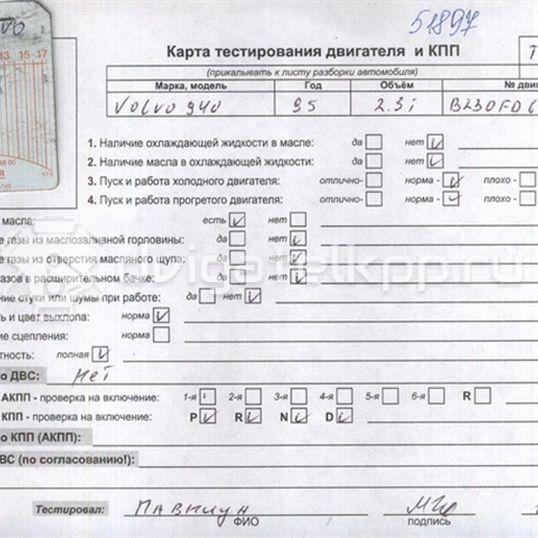 51897
Карта тестирования двигателя и КПП
(прикалывать к листу разборки автомобиля)
Марка, модель Год Объём № дви
Volvo 940 95 2.3i B230FD
1. Наличие охлаждающей жидкости в масле: да нет
2. Наличие масла в охлаждающей жидкости: да нет
3. Пуск и работа холодного двигателя: отлично- норма - плохо -
4. Пуск и работа прогретого двигателя: отлично- норма - плохо -
масла: есть нет
е газы из маслозаливной горловины: да нет
е газы из отверстия масляного щупа: да нет
газов в расширительном бачке: да нет
ние стуки или шумы при работе: да нет
ь и цвет выхлопа: норма
ие сцепления: норма
тность: полная
о ДВС: нет
АКПП - проверка на включение: 1-я 2-я 3-я 4-я 5-я 6-я R
КПП - проверка на включение: P R N D
о КПП (АКПП):
ВС (по согласованию!):
Тестировал:
ФИО подпись
13 15 17
vigatelkpp.ru